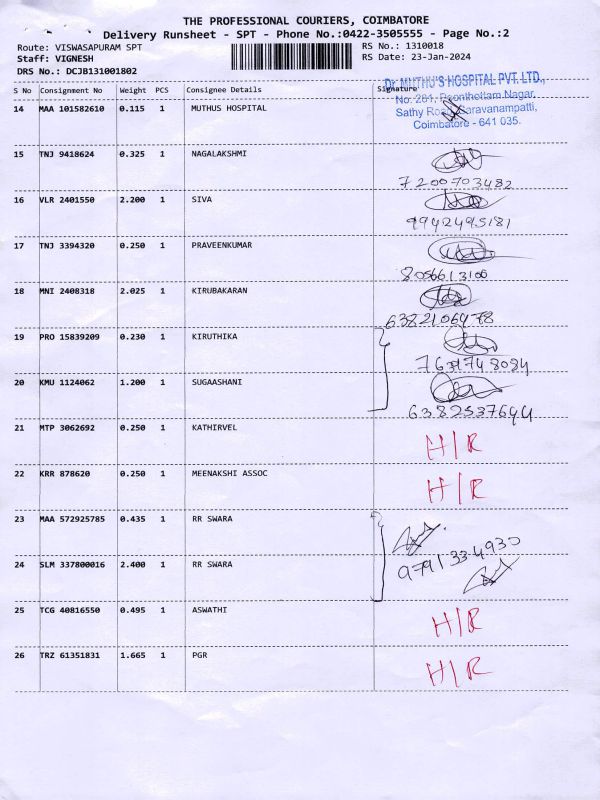 THE PROFESSIONAL COURIERS, COIMBATORE
Delivery Runsheet - SPT - Phone No.:0422-3505555 - Page No.:2
Route: VISWASAPURAM SPT RS No.: 1310018
Staff: VIGNESH RS Date: 23-Jan-2024
DRS No.: DCJB131001802
S No Consignment No Weight PCS Consignee Details Signature
Dr. MUTHU'S HOSPITAL PVT. LTD.,
14 MAA 101582610 0.115 1 MUTHUS HOSPITAL
No. 281, Poonthottam Nagar,
Sathy Road, Saravanampatti,
Coimbatore - 641 035.
15 TNJ 9418624 0.325 1 NAGALAKSHMI
7200703482
16 VLR 2401550 2.200 1 SIVA
9942495181
17 TNJ 3394320 0.250 1 PRAVEENKUMAR
8056613100
18 MNI 2408318 2.025 1 KIRUBAKARAN
6382106478
19 PRO 15839209 0.230 1 KIRUTHIKA
20 KMU 1124062 1.200 1 SUGAASHANI
6382537644
21 MTP 3062692 0.250 1 KATHIRVEL
H/R
22 KRR 878620 0.250 1 MEENAKSHI ASSOC
H/R
23 MAA 572925785 0.435 1 RR SWARA
9791334930
24 SLM 337800016 2.400 1 RR SWARA
25 TCG 40816550 0.495 1 ASWATHI
H/R
26 TRZ 61351831 1.665 1 PGR
H/R